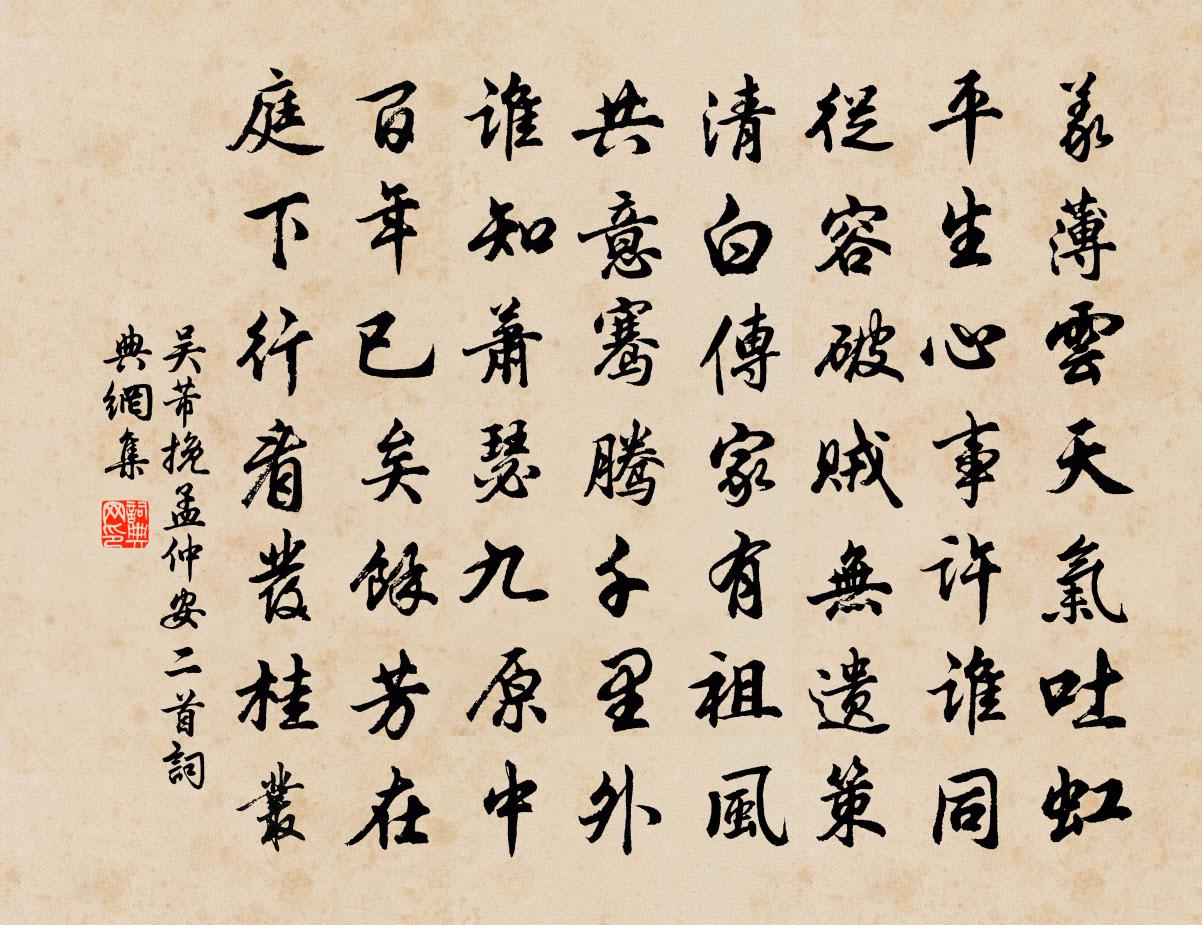 義薄雲天氣吐虹
平生心事許誰同
從容破賊無遺策
清白傳家有祖風
共意騫騰千里外
誰知蕭瑟九原中
百年已矣餘芳在
庭下行看發桂叢
吴芾挽孟仲安二首詞
典網集
詞典
网印